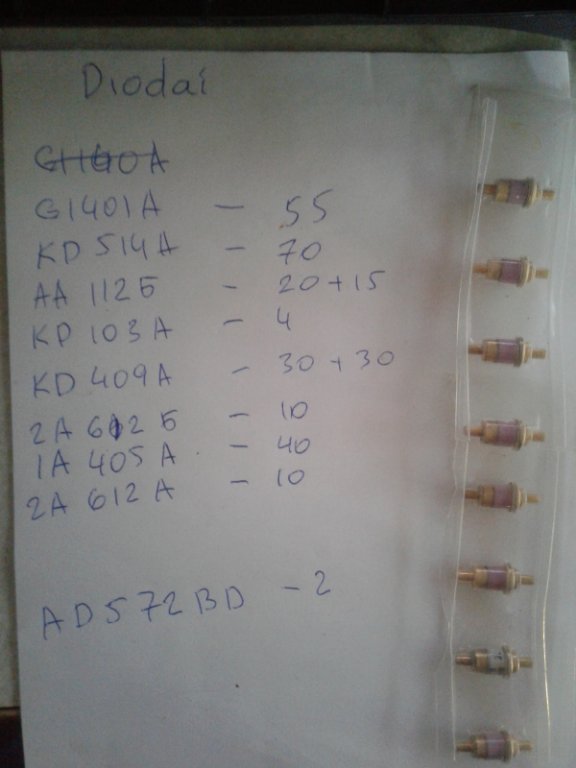 Diodai
GI401A - 55
KD 514A - 70
AA 112Б - 20+15
KD 103A - 4
KD 409A - 30+30
2A 612Б - 10
1A 405A - 40
2A 612A - 10
AD572BD - 2